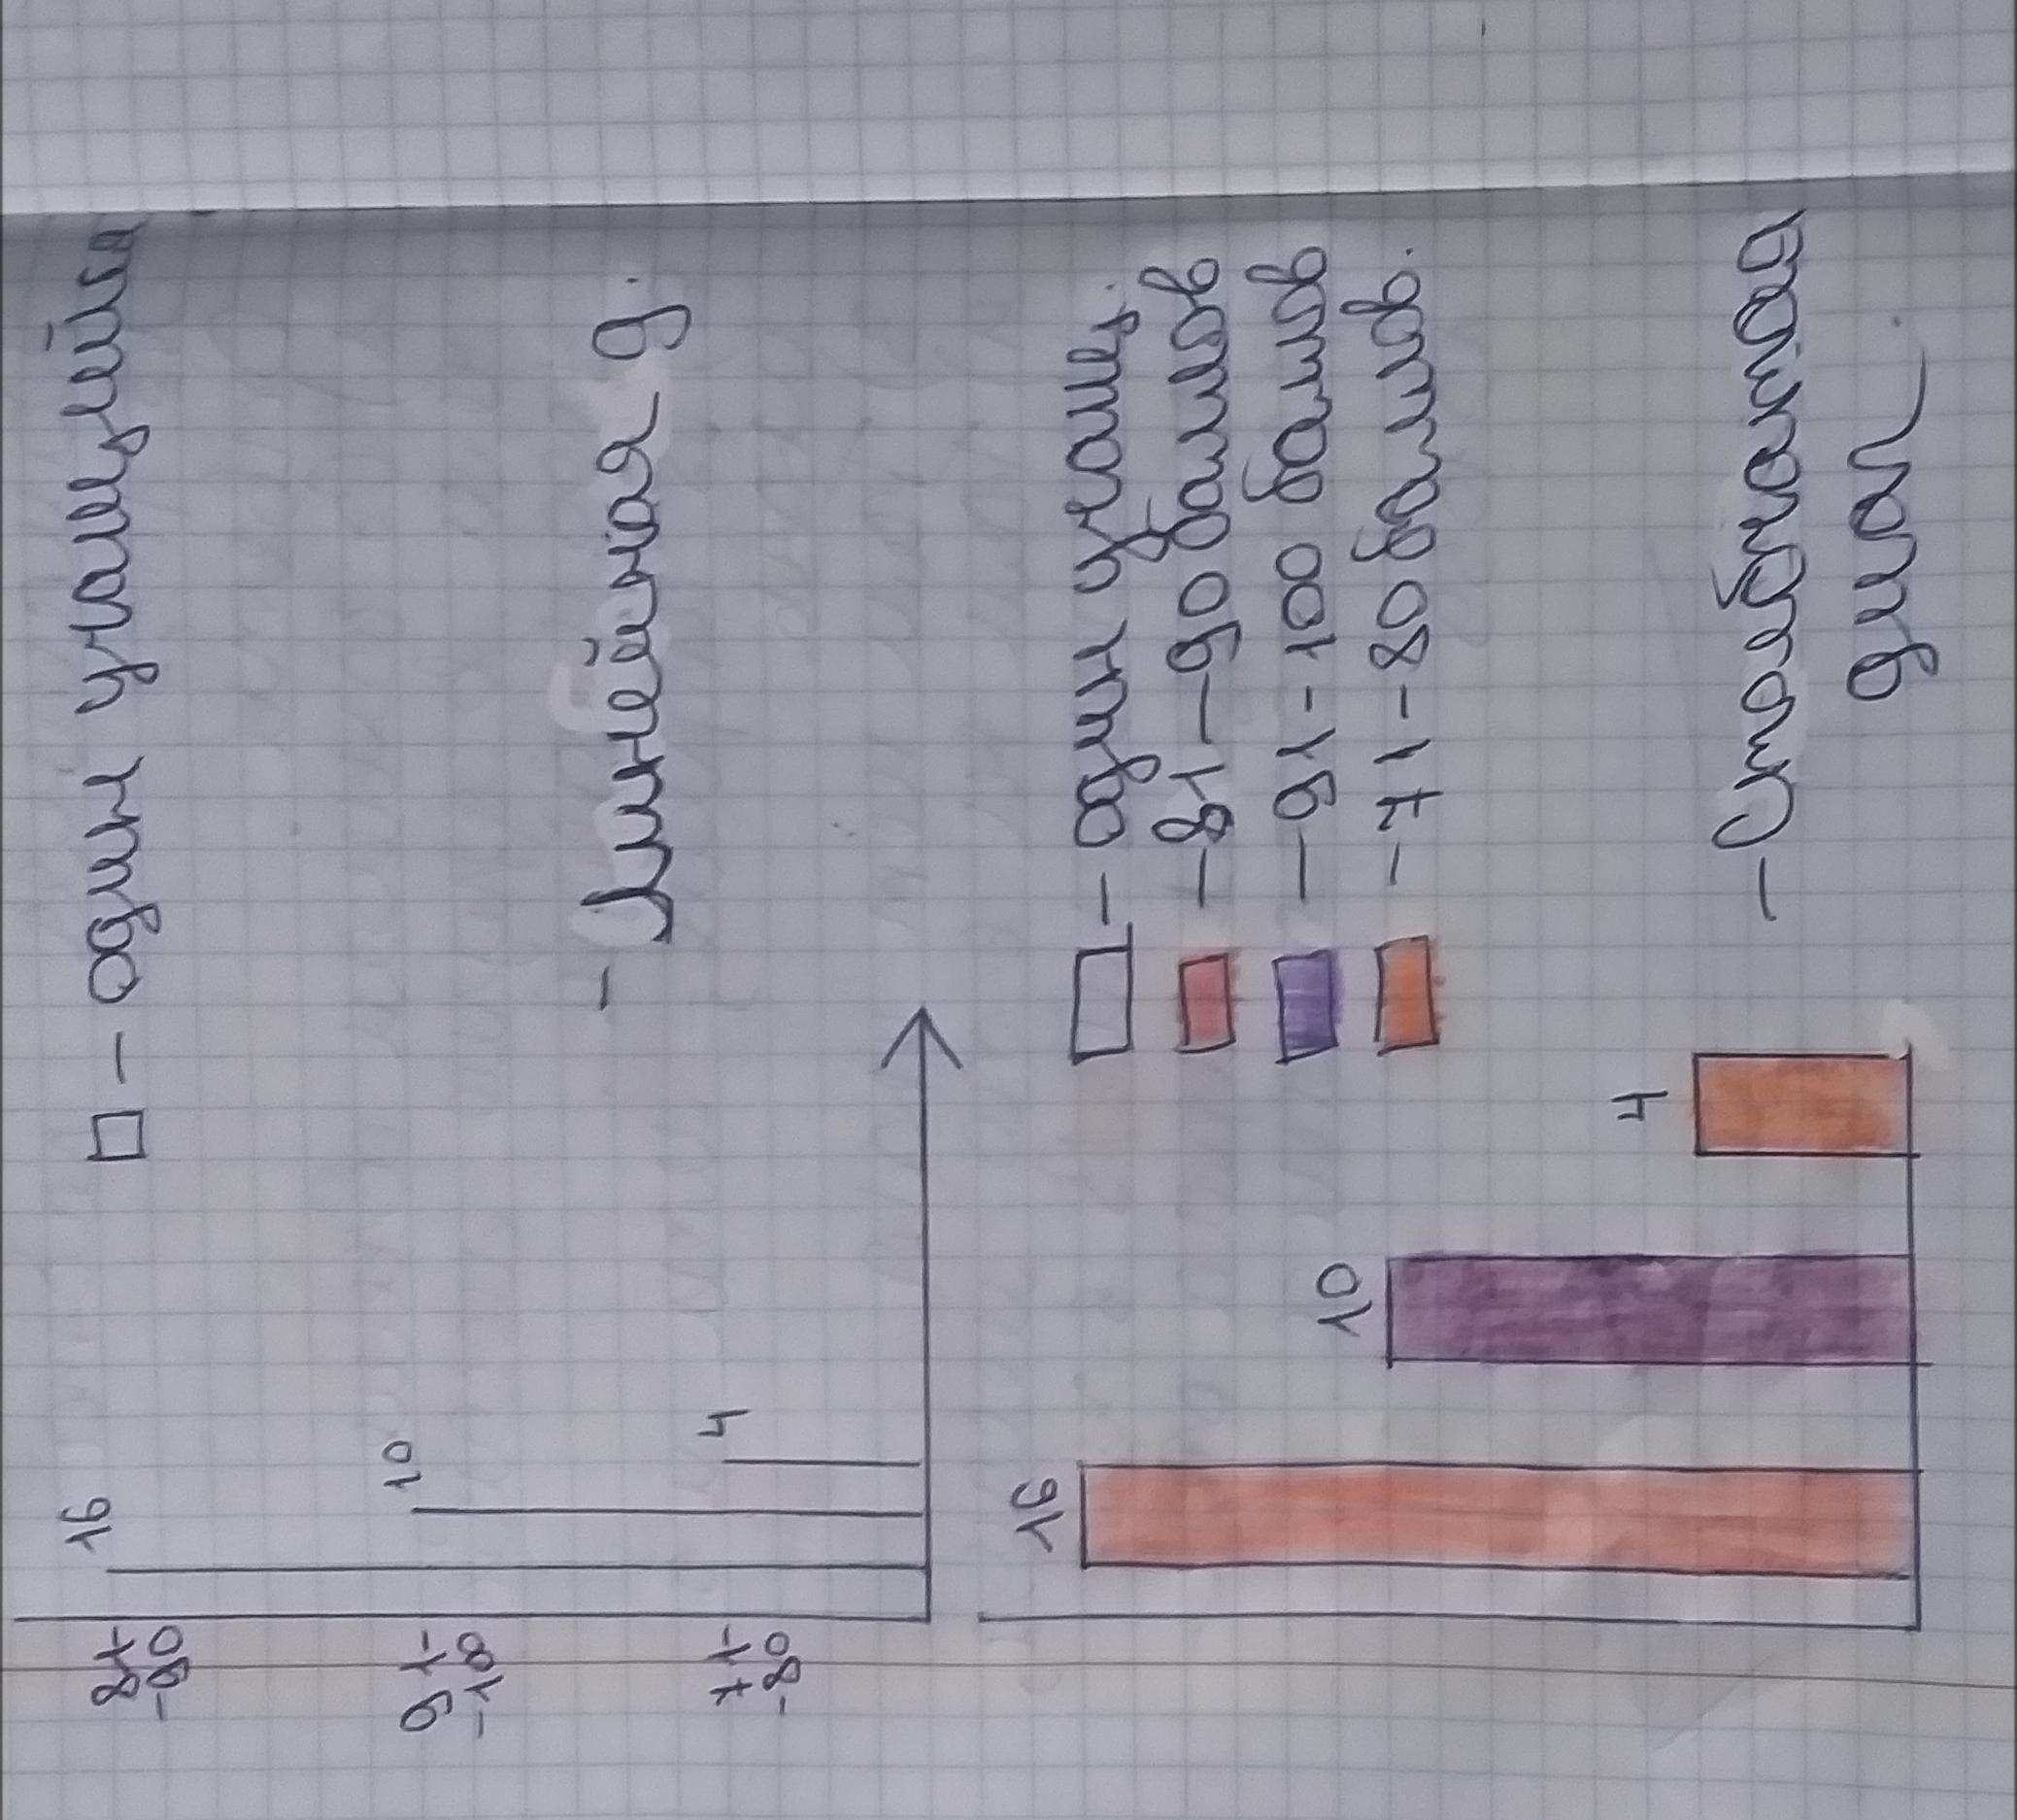 □ - один учащийся
16
81-
-90
10
91-
-100
- Линейная д.
4
71-
-80
- один учащ.
16
- 81-90 баллов
- 91-100 баллов
10
- 71-80 баллов.
4
- Столбчатая
диа